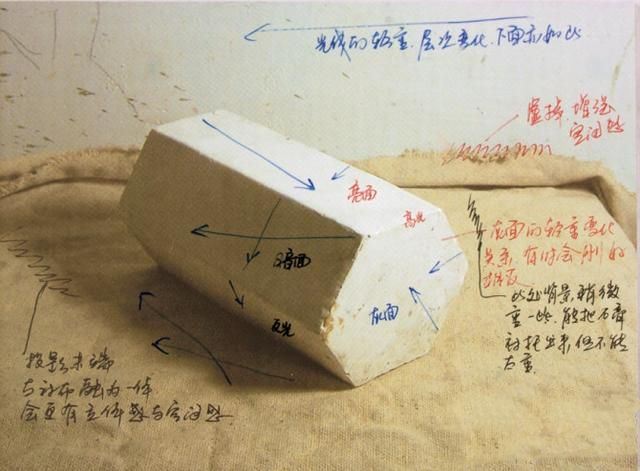 光线的轻重.层次变化.下面亦如此
虚掉.增强
空间感
亮面
高光
灰面的轻重变化
关系.有时会刚好
相反
暗面
反光
灰面
此处背景.稍微
重一些.能把石膏
衬托出来.但不能
太重.
投影末端
与衬布融为一体
会更有立体感与空间感.